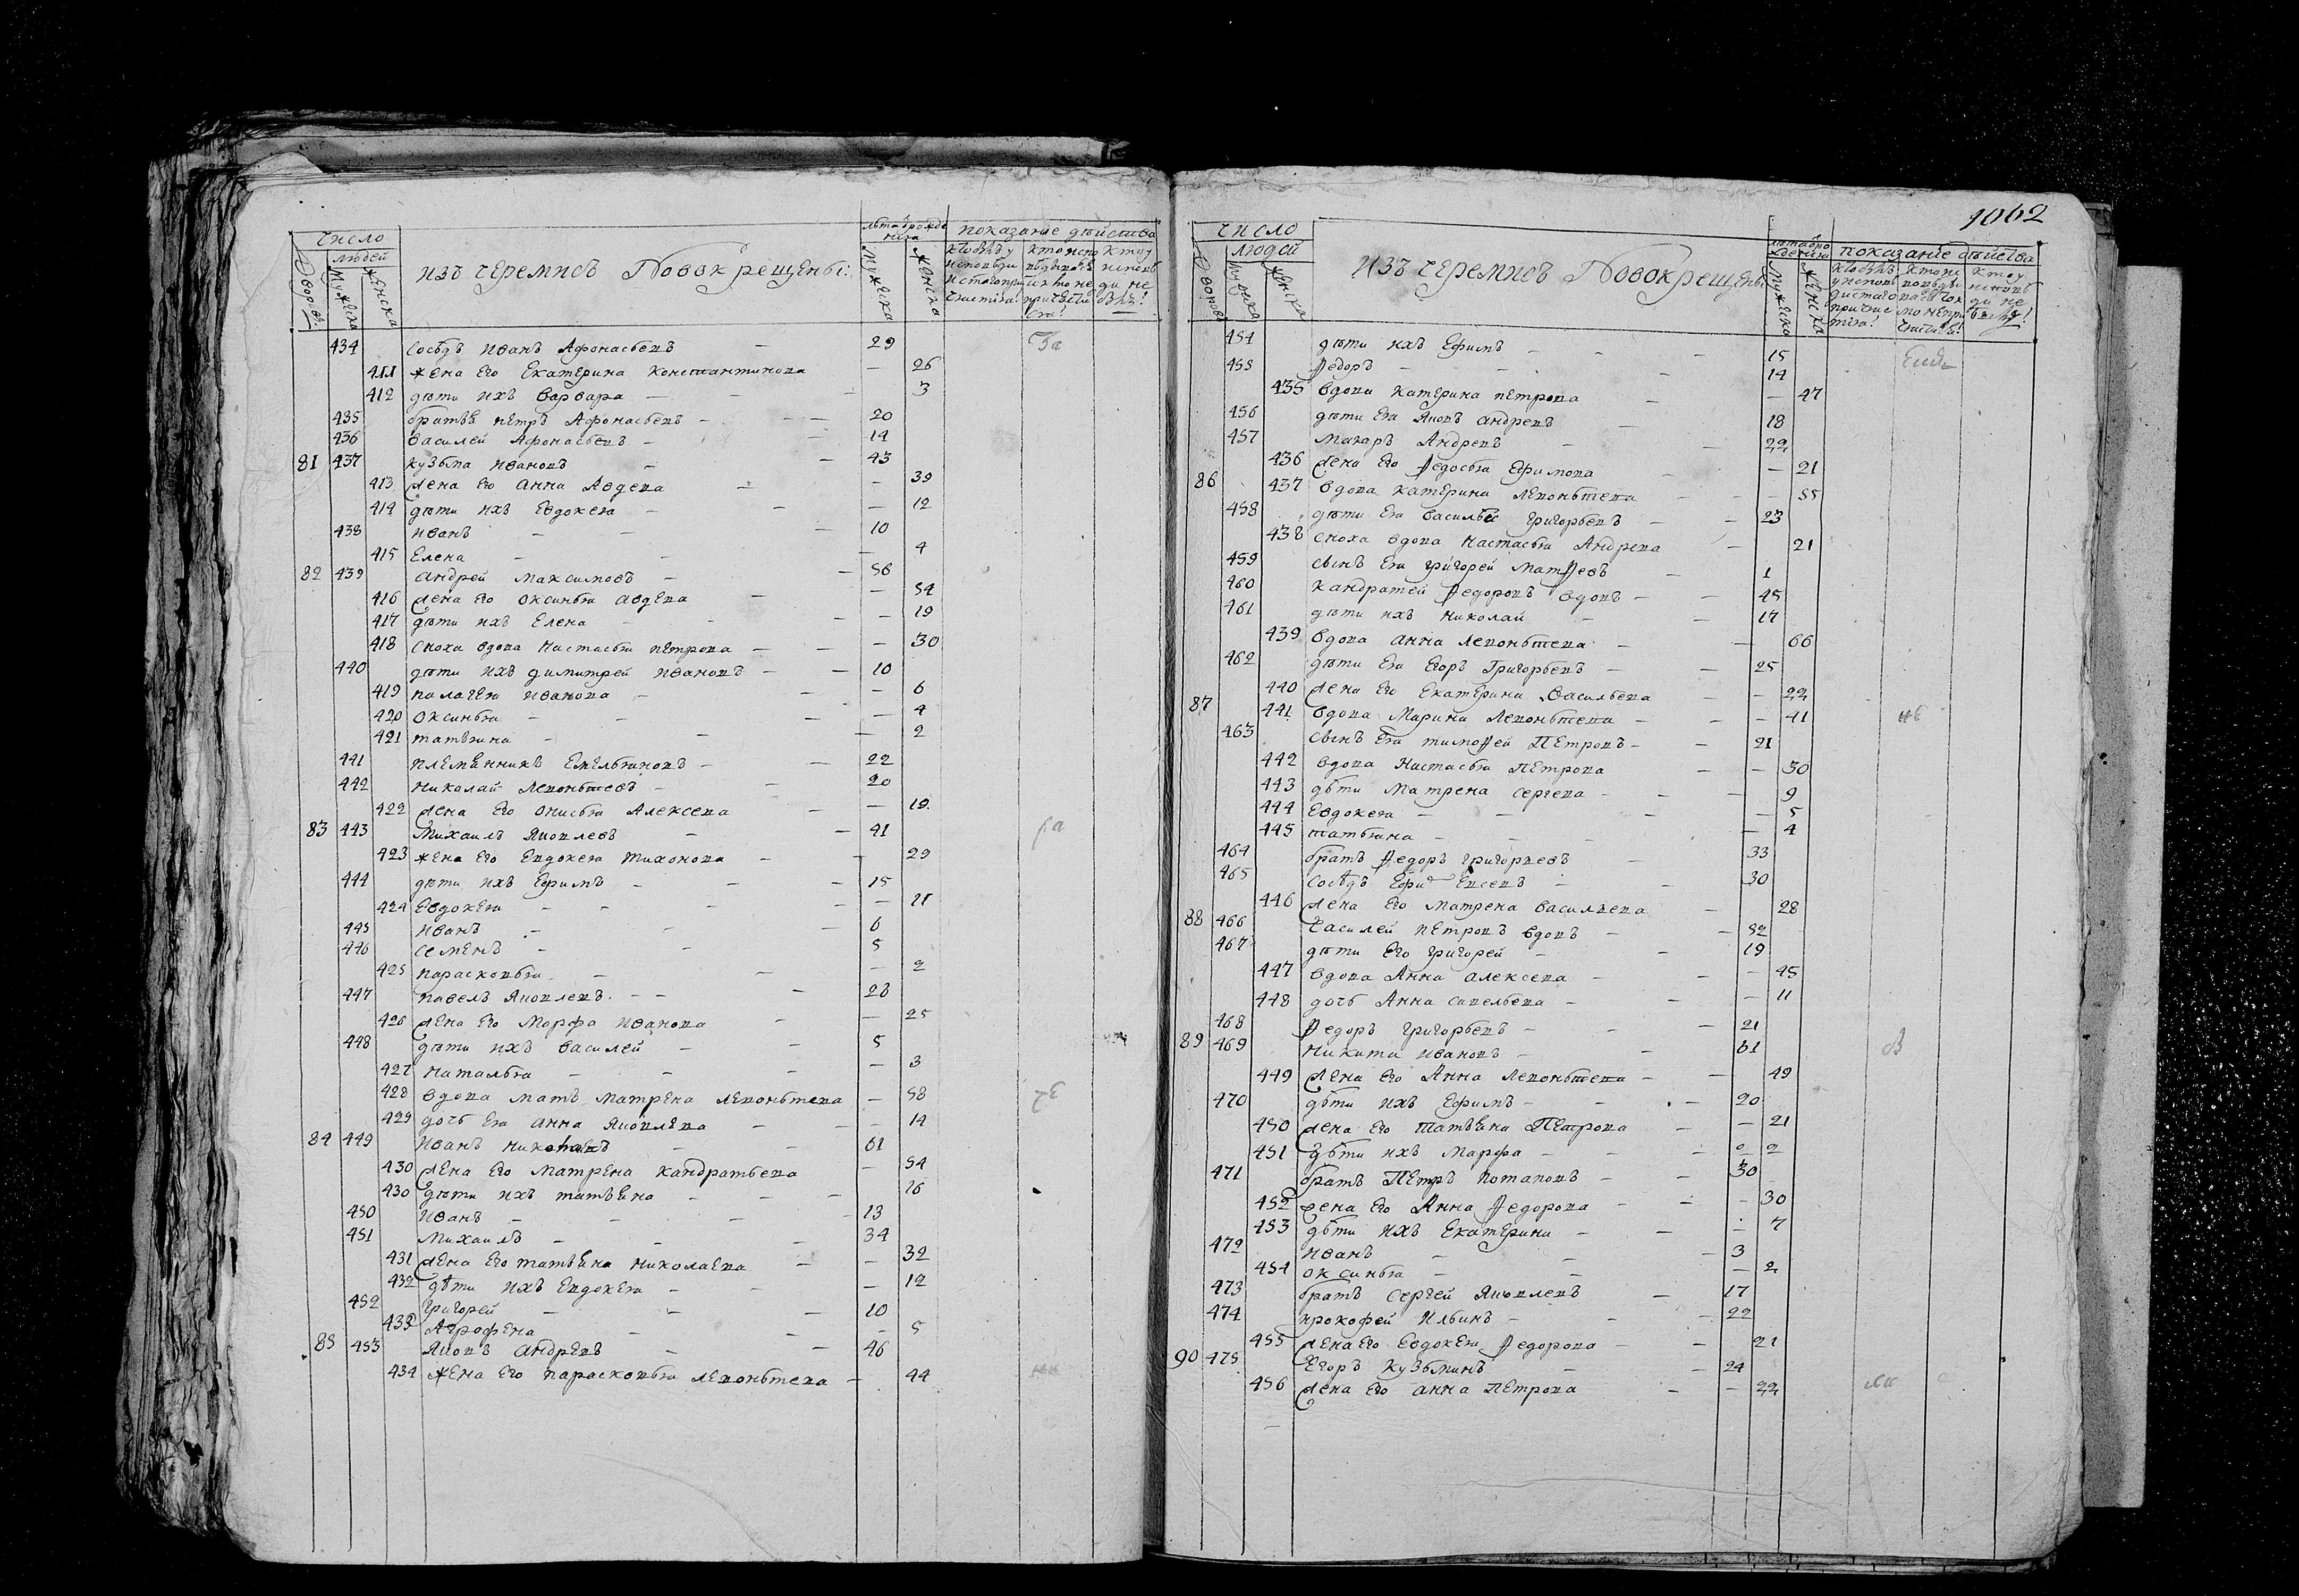 число
людей
Дворовъ
Мужеска
Женска
изъ черемисъ Новокрещены
мужеска
женска
показание действа
434 сосѣдъ иванъ Афонасьевъ — 29
411 жена его Екатерина константинова — 26
412 дѣти ихъ варвара — 3
435 братья петръ Афонасьевъ — 20
436 василей Афонасьевъ — 14
81 437 кузьма ивановъ — 43
413 жена его Анна Авдеева — 39
414 дѣти ихъ Евдокея — 12
438 иванъ — 10
415 Елена — 4
82 439 андрей максимовъ — 56
416 жена его оксинья авдеева — 54
417 дѣти ихъ Елена — 19
418 сноха вдова настасья петрова — 30
440 дѣти ихъ димитрей ивановъ — 10
419 палагея иванова — 6
420 оксинья — 4
421 татьяна — 2
441 племянникъ Емельяновъ — 22
442 николай леонтьевъ — 20
422 жена его онисья Алексеева — 19
83 443 михаилъ яковлевъ — 41
423 жена его Евдокея тихонова — 29
444 дѣти ихъ Ефимъ — 15
424 Евдокея —
445 иванъ — 6
446 семенъ — 5
425 парасковья — 2
447 павелъ яковлевъ — 28
426 жена его Марфа иванова — 25
448 дѣти ихъ василей — 5
427 наталья — 3
428 вдова мать матрена леонтьева — 58
429 дочь ея анна яковлева — 14
84 449 иванъ — 61
430 жена его матрена кандратьева — 54
430 дѣти ихъ татьяна — 16
450 иванъ — 13
451 михаилъ — 34
431 жена его татьяна николаева — 32
432 дѣти ихъ Евдокея — 12
452 григорей — 10
433 Агрофена — 5
85 453 яковъ андреевъ — 46
434 жена его парасковья леонтьева — 44
1062
число
людей
Дворовъ
Мужеска
Женска
изъ черемисъ Новокрещены
мужеска
женска
показание действа
454 дѣти ихъ Ефимъ — 15
455 Ѳедоръ — 14
435 вдова катерина петрова — 47
456 дѣти ея яковъ андреевъ — 18
457 макаръ Андреевъ — 22
436 жена его Ѳедосья Ефимова — 21
86 437 вдова катерина леонтьева — 55
458 дѣти ея василей григорьевъ — 23
438 сноха вдова настасья Андреева — 21
459 сынъ ея григорей матѲеевъ — 1
460 кандратей Ѳедоровъ вдовъ — 45
461 дѣти ихъ николай — 17
439 вдова анна леонтьева — 66
462 дѣти ея егоръ Григорьевъ — 25
440 жена его Екатерина васильева — 22
87 441 вдова Марина леонтьева — 41
463 сынъ ея тимоѲей Петровъ — 21
442 вдова настасья Петрова — 30
443 дѣти матрена сергеева — 9
444 Евдокея — 5
445 татьяна — 4
464 братъ Ѳедоръ григорьевъ — 33
465 сосѣдъ — 30
446 жена его матрена васильева — 28
88 466 василей петровъ вдовъ — 52
467 дѣти его григорей — 19
447 вдова Анна алексеева — 45
448 дочь Анна савельева — 11
468 Ѳедоръ григорьевъ — 21
89 469 никита ивановъ — 61
449 жена его Анна леонтьева — 49
470 дѣти ихъ Ефимъ — 20
450 жена его татьяна Петрова — 21
451 дѣти ихъ Марфа — 2
471 братъ Петръ потаповъ — 30
452 жена его Анна Ѳедорова — 30
453 дѣти ихъ Екатерина — 7
472 иванъ — 3
454 оксинья — 2
473 братъ сергей яковлевъ — 17
474 прокофей ильинъ — 22
455 жена его Евдокея Ѳедорова — 21
90 475 Егоръ кузьминъ — 24
456 жена его анна Петрова — 22